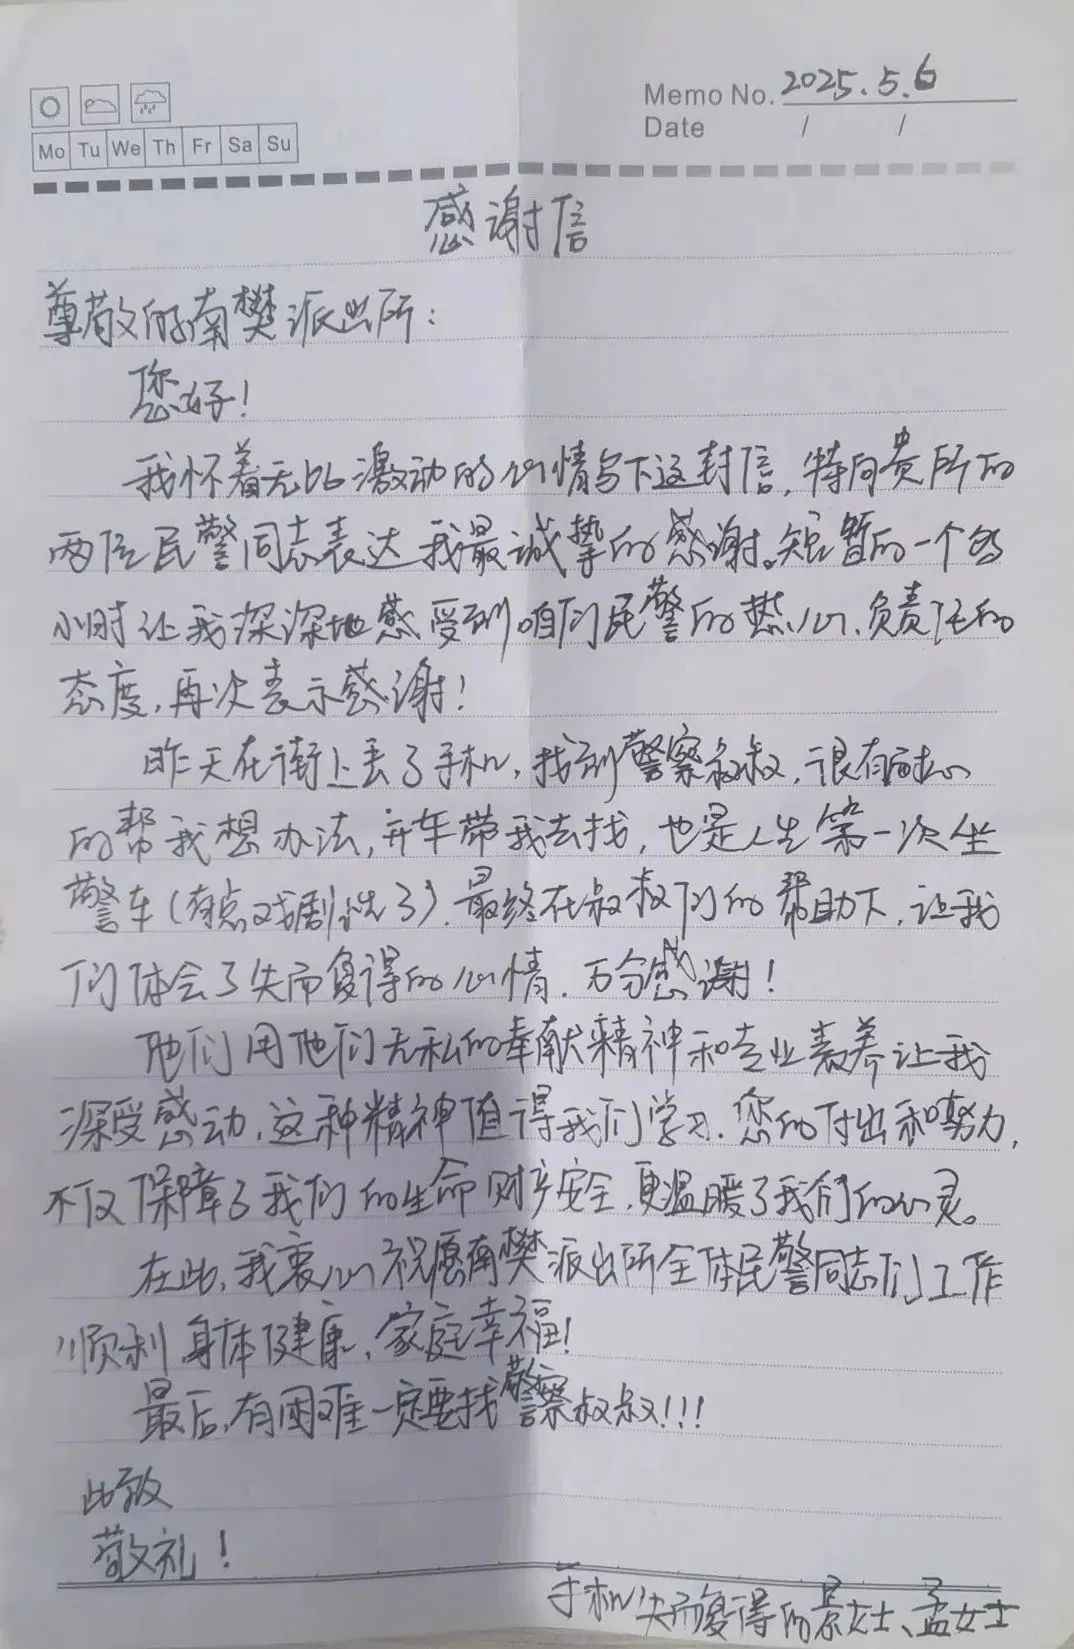 Memo No. 2025.5.6
Date / /
Mo Tu We Th Fr Sa Su
感谢信
尊敬的南樊派出所：
您好！
我怀着无比激动的心情写下这封信，特向贵所的
两位民警同志表达我最诚挚的感谢。短暂的一个多
小时让我深深地感受到咱们民警的热心、负责任的
态度，再次表示感谢！
昨天在街上丢了手机，找到警察叔叔，很有耐心
的帮我想办法，开车带我去找，也是人生第一次坐
警车（有点戏剧性了）。最终在叔叔们的帮助下，让我
们体会了失而复得的心情，万分感谢！
他们用他们无私的奉献精神和专业素养让我
深受感动，这种精神值得我们学习。您的付出和努力，
不仅保障了我们的生命财产安全，更温暖了我们的心灵。
在此，我衷心祝愿南樊派出所全体民警同志们工作
顺利，身体健康，家庭幸福！
最后，有困难一定要找警察叔叔!!!
此致
敬礼！
手机失而复得的景女士、孟女士